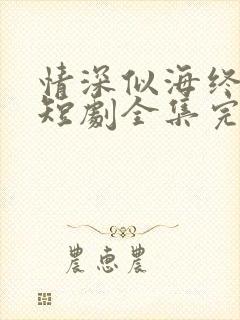 情深似海终
短劇全集完
農惠農